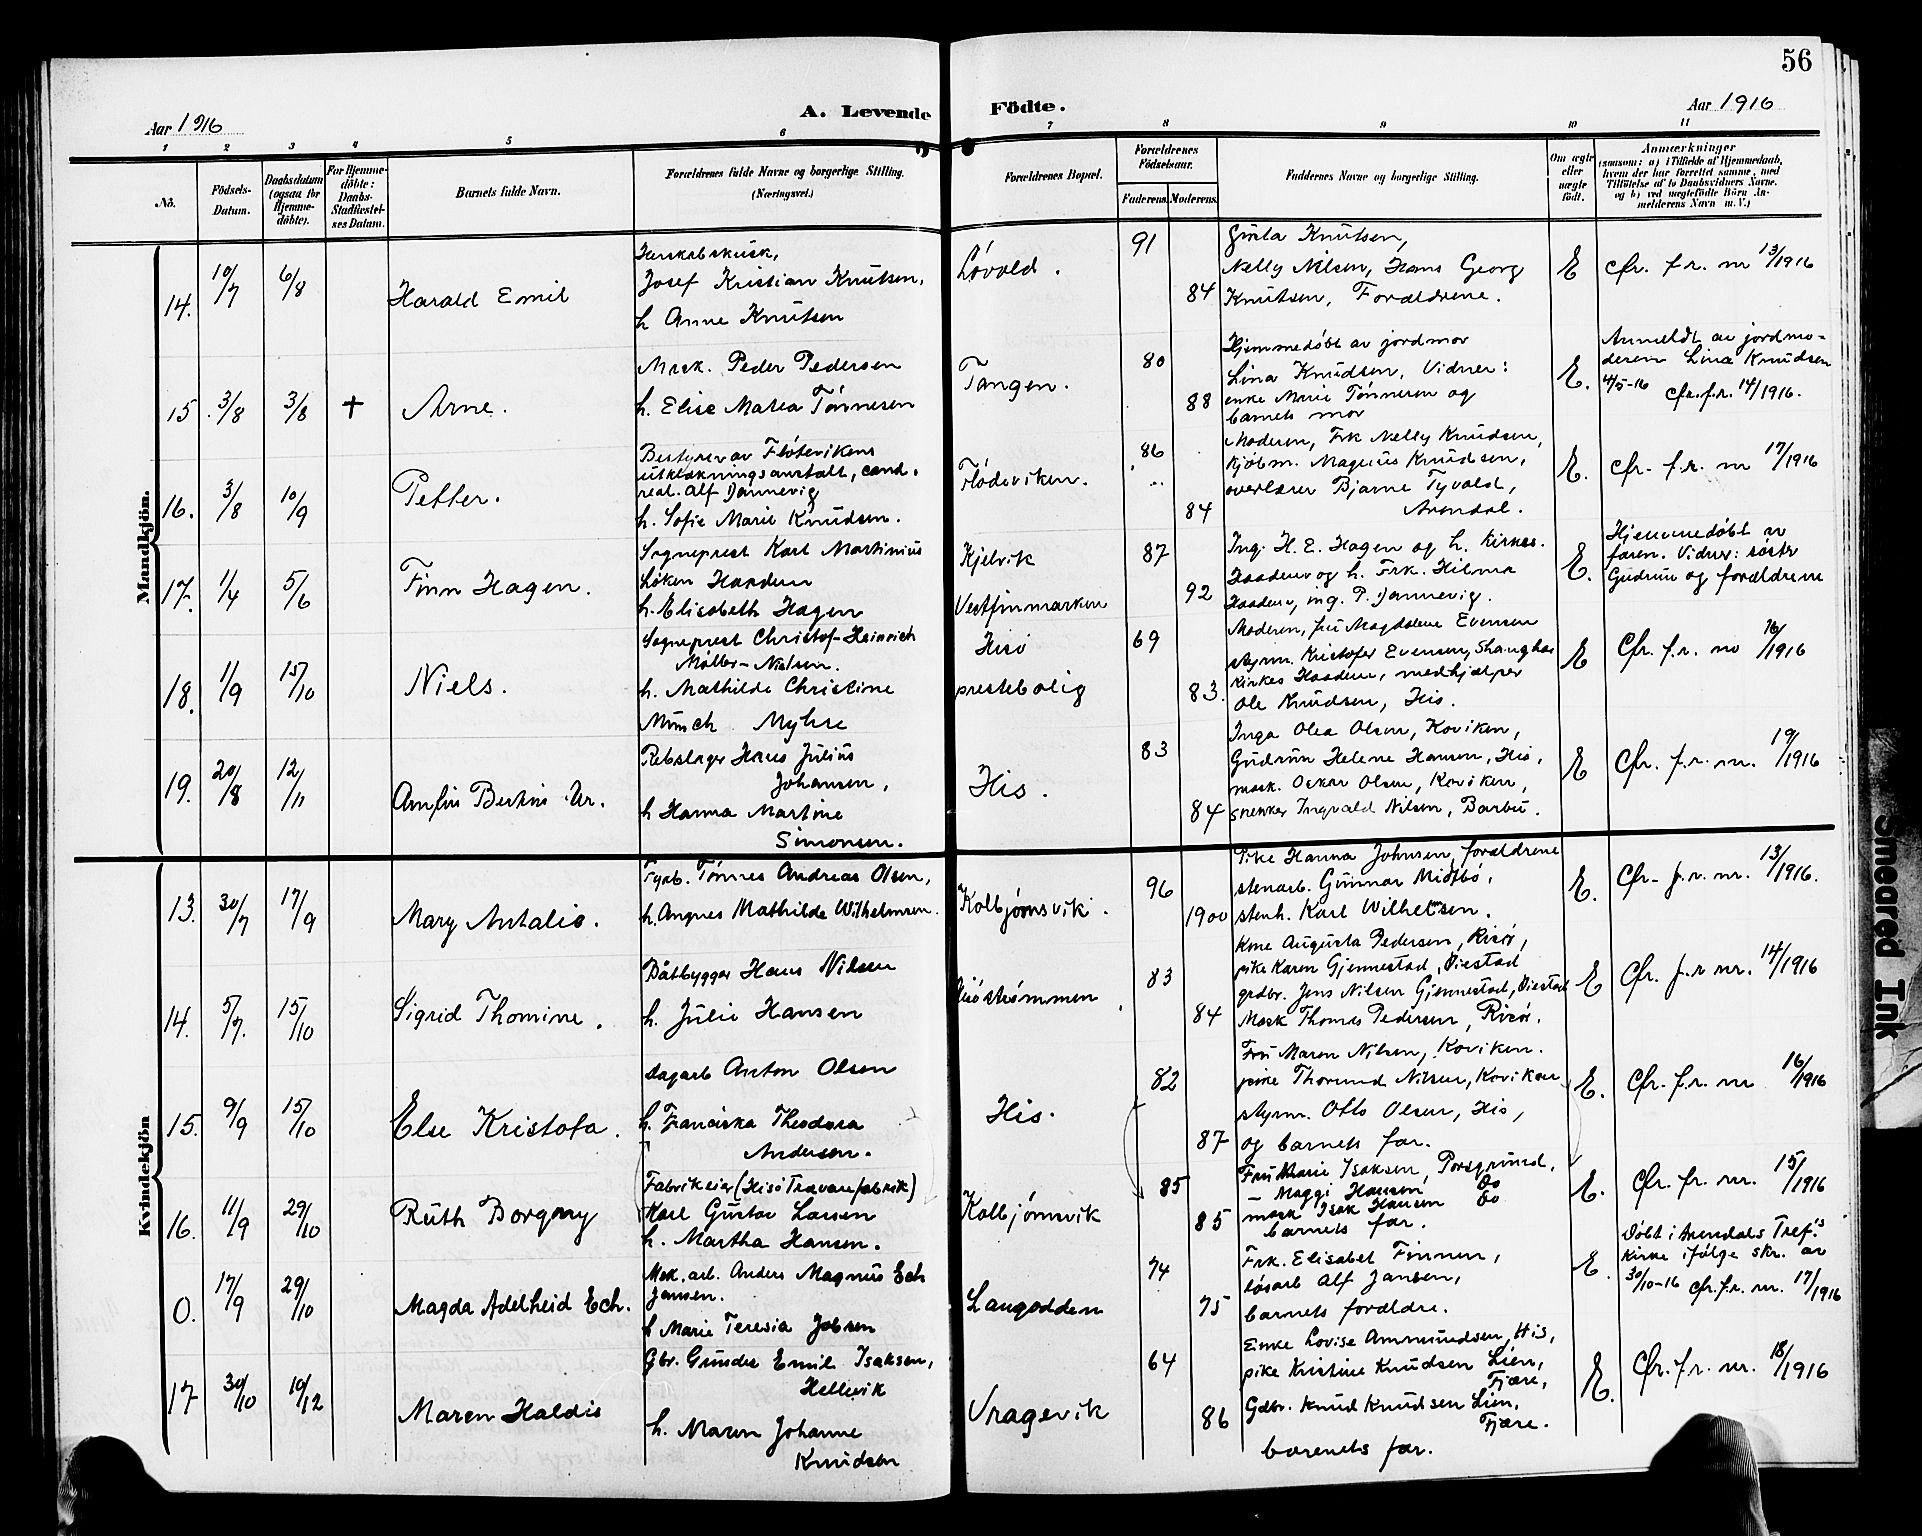 56
Aar 1916
A. Levende
Födte.
Aar 1916
1 2 3 4 5 6 7 8 9 10 11
No.
Födsels-Datum.
Daabsdatum (ogsaa for Hjemme-döbte).
For Hjemme-döbte: Daabs-Stadfæstel-ses Datum.
Barnets fulde Navn.
Forældrenes fulde Navne og borgerlige Stilling. (Næringsvei.)
Forældrenes Bopæl.
Forældrenes Födselsaar.
Faderens. Moderens.
Faddernes Navne og borgerlige Stilling.
Om ægte eller uægte födt.
Anmærkninger
(saasom: a) i Tilfælde af Hjemmedaab, hvem der har forrettet samme, med Tilföielse af to Daabsvidners Navne, og b) ved uægtefödte Börn An-melderens Navn m. V.)
Mandkjön.
14. 10/7 6/8 Harald Emil
Josef Kristian Knutsen,
h Anne Knutsen
Løvold.
91
84
Nelly Nilsen, Hans Georg
Knutsen, Forældrene.
E
cfr. f.r. nr 13/1916
15. 3/8 3/8 + Arne.
Mask. Peder Pedersen
h. Elise Marea Tønnesen
Tangen.
80
88
Hjemmedøbt av jordmor
Lina Knudsen, Vidner:
enke Marie Tønnesen og
barnets mor
E.
Anmeldt av jordmo-
deren Lina Knudsen
cfr. f.r. 14/1916.
16. 3/8 10/9 Petter.
Bestyrer av Fløtevikens
utklækningsanstalt, cand.
real. Alf Dannevig
h. Sofie Marie Knudsen.
Flødeviken.
86
84
Moderen, Frk Nelly Knudsen,
kjøbm. Magnus Knudsen,
overlærer Bjarne Tyvold,
Arendal.
E.
cfr. f.r. nr 17/1916
17. 1/4 5/6 Finn Hagen.
Sogneprest Karl Martinius
Løken Haadem
h. Elisabeth Hagen
Kjelvik
Vestfinmarken
87
92
Ing. H. E. Hagen og h. kirkes.
Haadem og h. Frk. Hilma
Haadem, ing. P. Dannevig.
E.
Hjemmedøbt av
faren. Vidner: søster
Gudrun og forældrene
18. 1/9 15/10 Niels.
Sogneprest Christof-Heinrich
Møller-Nielsen.
h. Mathilde Christine
Münch Myhre
Hisø
prestebolig
69
83.
Moderen, fru Magdalene Evensen
styrm. Kristofer Evensen, Shanghai
kirkes Haadem, medhjælper
Ole Knudsen, His.
E
Cfr. f.r. no 16/1916
19. 20/8 12/11 Arnfin Bertin
Rebslager Hans Julius
Johansen,
h Hanna Martine
Simonsen.
His.
83
84
Inga Olea Olsen, Koviken,
Gudrun Helene Hansen, His,
mask. Oskar Olsen, Koviken,
snekker Ingvald Nilsen, Barbu.
E
Cfr. f.r. nr. 19/1916
Kvindekjön
13. 30/7 17/9 Mary Antalie.
Fyrb. Tønnes Andreas Olsen,
h. Angnes Mathilde Wilhelmsen.
Kolbjørnsvik.
96
1900
Pike Hanna Johnsen, forældrene
stenarb. Gunnar Midtbø,
stenh. Karl Wilhelmsen.
E.
Cfr. f.r. nr. 13/1916.
14. 5/7. 15/10 Sigrid Thomine.
Båtbygger Hans Nilsen
h. Julie Hansen
Hisøstrømmen
83
84
Kone Augusta Pedersen, Risør,
pike Karen Gjennestad, Øiestad
grdbr. Jens Nilsen Gjennestad, Øiestad
Mask Thomas Pedersen, Risør.
E
Cfr. f.r nr. 14/1916
15. 9/9 15/10 Else Kristofa.
Dagarb Anton Olsen
h. Franciska Theodora
Andersen.
His.
82
87
Fru Maren Nilsen, Koviken.
pike Thorunn Nilsen, Koviken
styrm. Otto Olsen, His,
og barnets far.
E.
Cfr. f.r. nr 16/1916
16. 11/9 29/10 Ruth Borgny
Fabrikeier (Hisø Trævarefabrik)
Karl Gustav Larsen
h. Martha Hansen.
Kolbjørnsvik
85
85
Fru Marie Isaksen, Porsgrund,
– Maggi Hansen Do
mask Isak Hansen Do
barnets far.
E.
Cfr. fr. nr. 15/1916
0. 17/9 29/10 Magda Adelheid Ech.
Mek. arb. Anders Magnus Ech
Jansen.
h Marie Teresia Jobsen
Langodden
74
75
Frk. Elisabet Finnen,
løsarb Alf Jansen,
barnets forældre.
E.
Døbt i Arendals Tref.s
kirke ifølge skr. av
30/10-16 cfr. f.r. nr. 17/1916
17 30/10 10/12 Maren Haldis
Gbr. Gunder Emil Isaksen,
Hellevik
h. Maren Johanne
Knudsen
Vragevik
64
86
Enke Lovise Ammundsen, His,
pike Kristine Knudsen Lien,
Fjære,
Gdbr. Knud Knudsen Lien,
Fjære.
barenets far.
E.
Cfr. f.r. nr. 18/1916
Smeared Ink